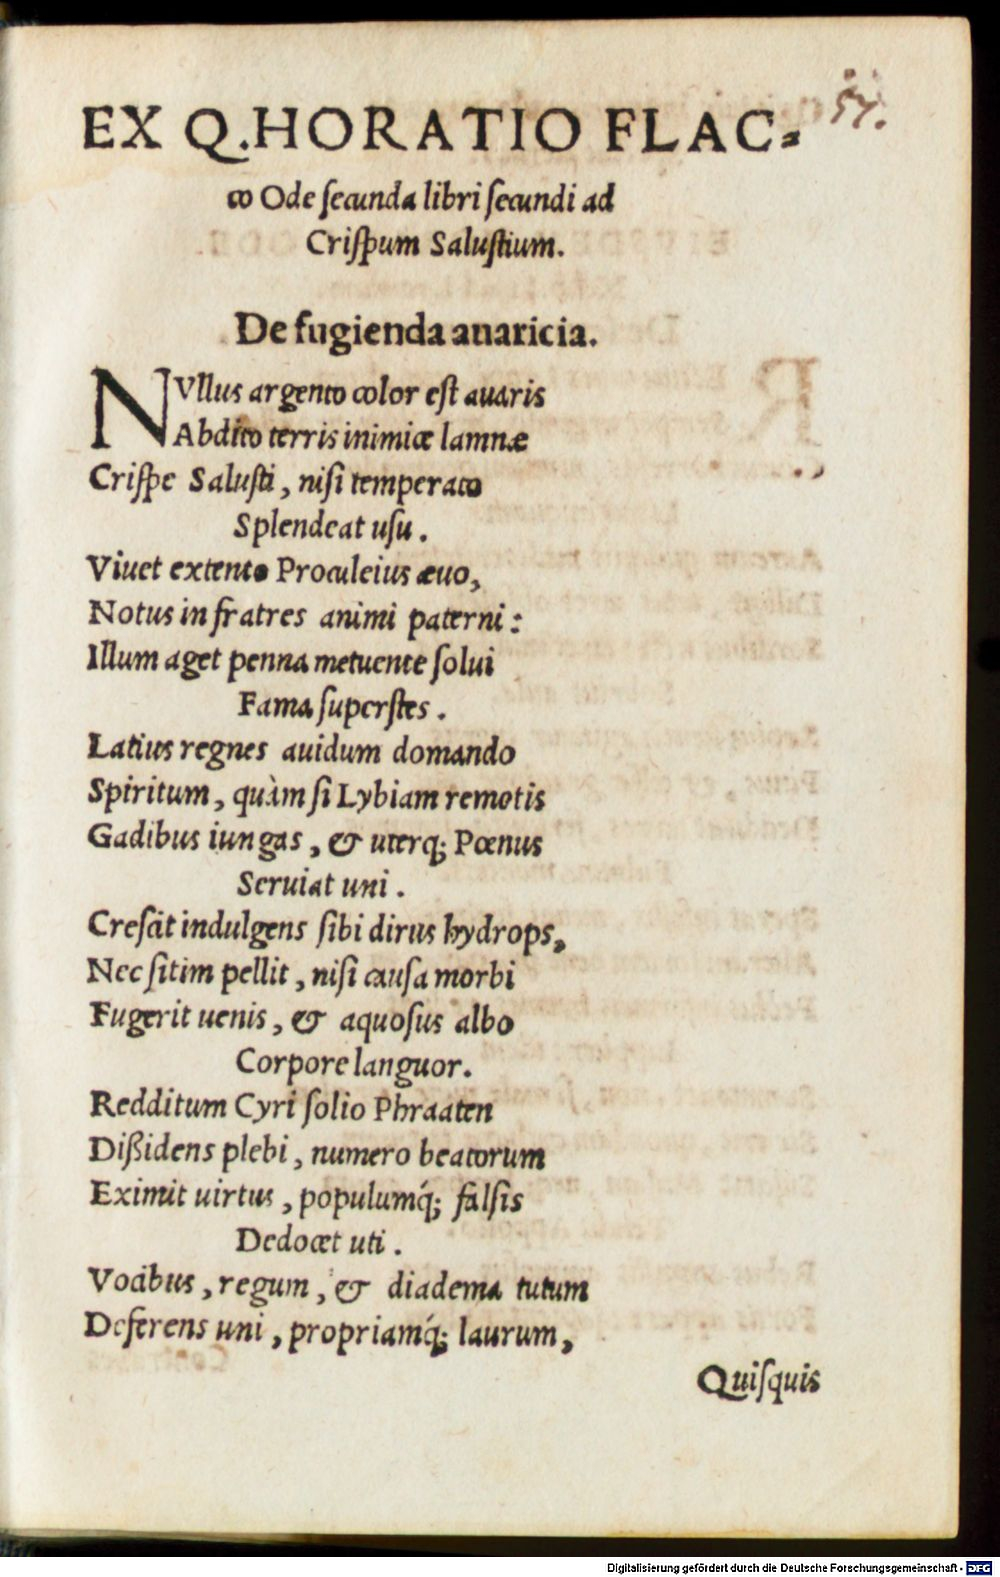 57.
EX Q.HORATIO FLAC-
co Ode ſecunda libri ſecundi ad
Criſpum Saluſtium.
De fugienda auaricia.
NVllus argento color eſt auaris
Abdito terris inimicæ lamnæ
Criſpe Saluſti, niſi temperato
Splendeat uſu.
Viuet extento Proculeius æuo,
Notus in fratres animi paterni:
Illum aget penna metuente ſolui
Fama ſuperſtes.
Latius regnes auidum domando
Spiritum, quàm ſi Lybiam remotis
Gadibus iungas, & uterq; Pœnus
Seruiat uni.
Creſcit indulgens ſibi dirus hydrops,
Nec ſitim pellit, niſi cauſa morbi
Fugerit uenis, & aquoſus albo
Corpore languor.
Redditum Cyri ſolio Phraaten
Dißidens plebi, numero beatorum
Eximit uirtus, populumq́; falſis
Dedocet uti.
Vocibus, regum, & diadema tutum
Deferens uni, propriamq́; laurum,
Quiſquis
Digitalisierung gefördert durch die Deutsche Forschungsgemeinschaft - DFG